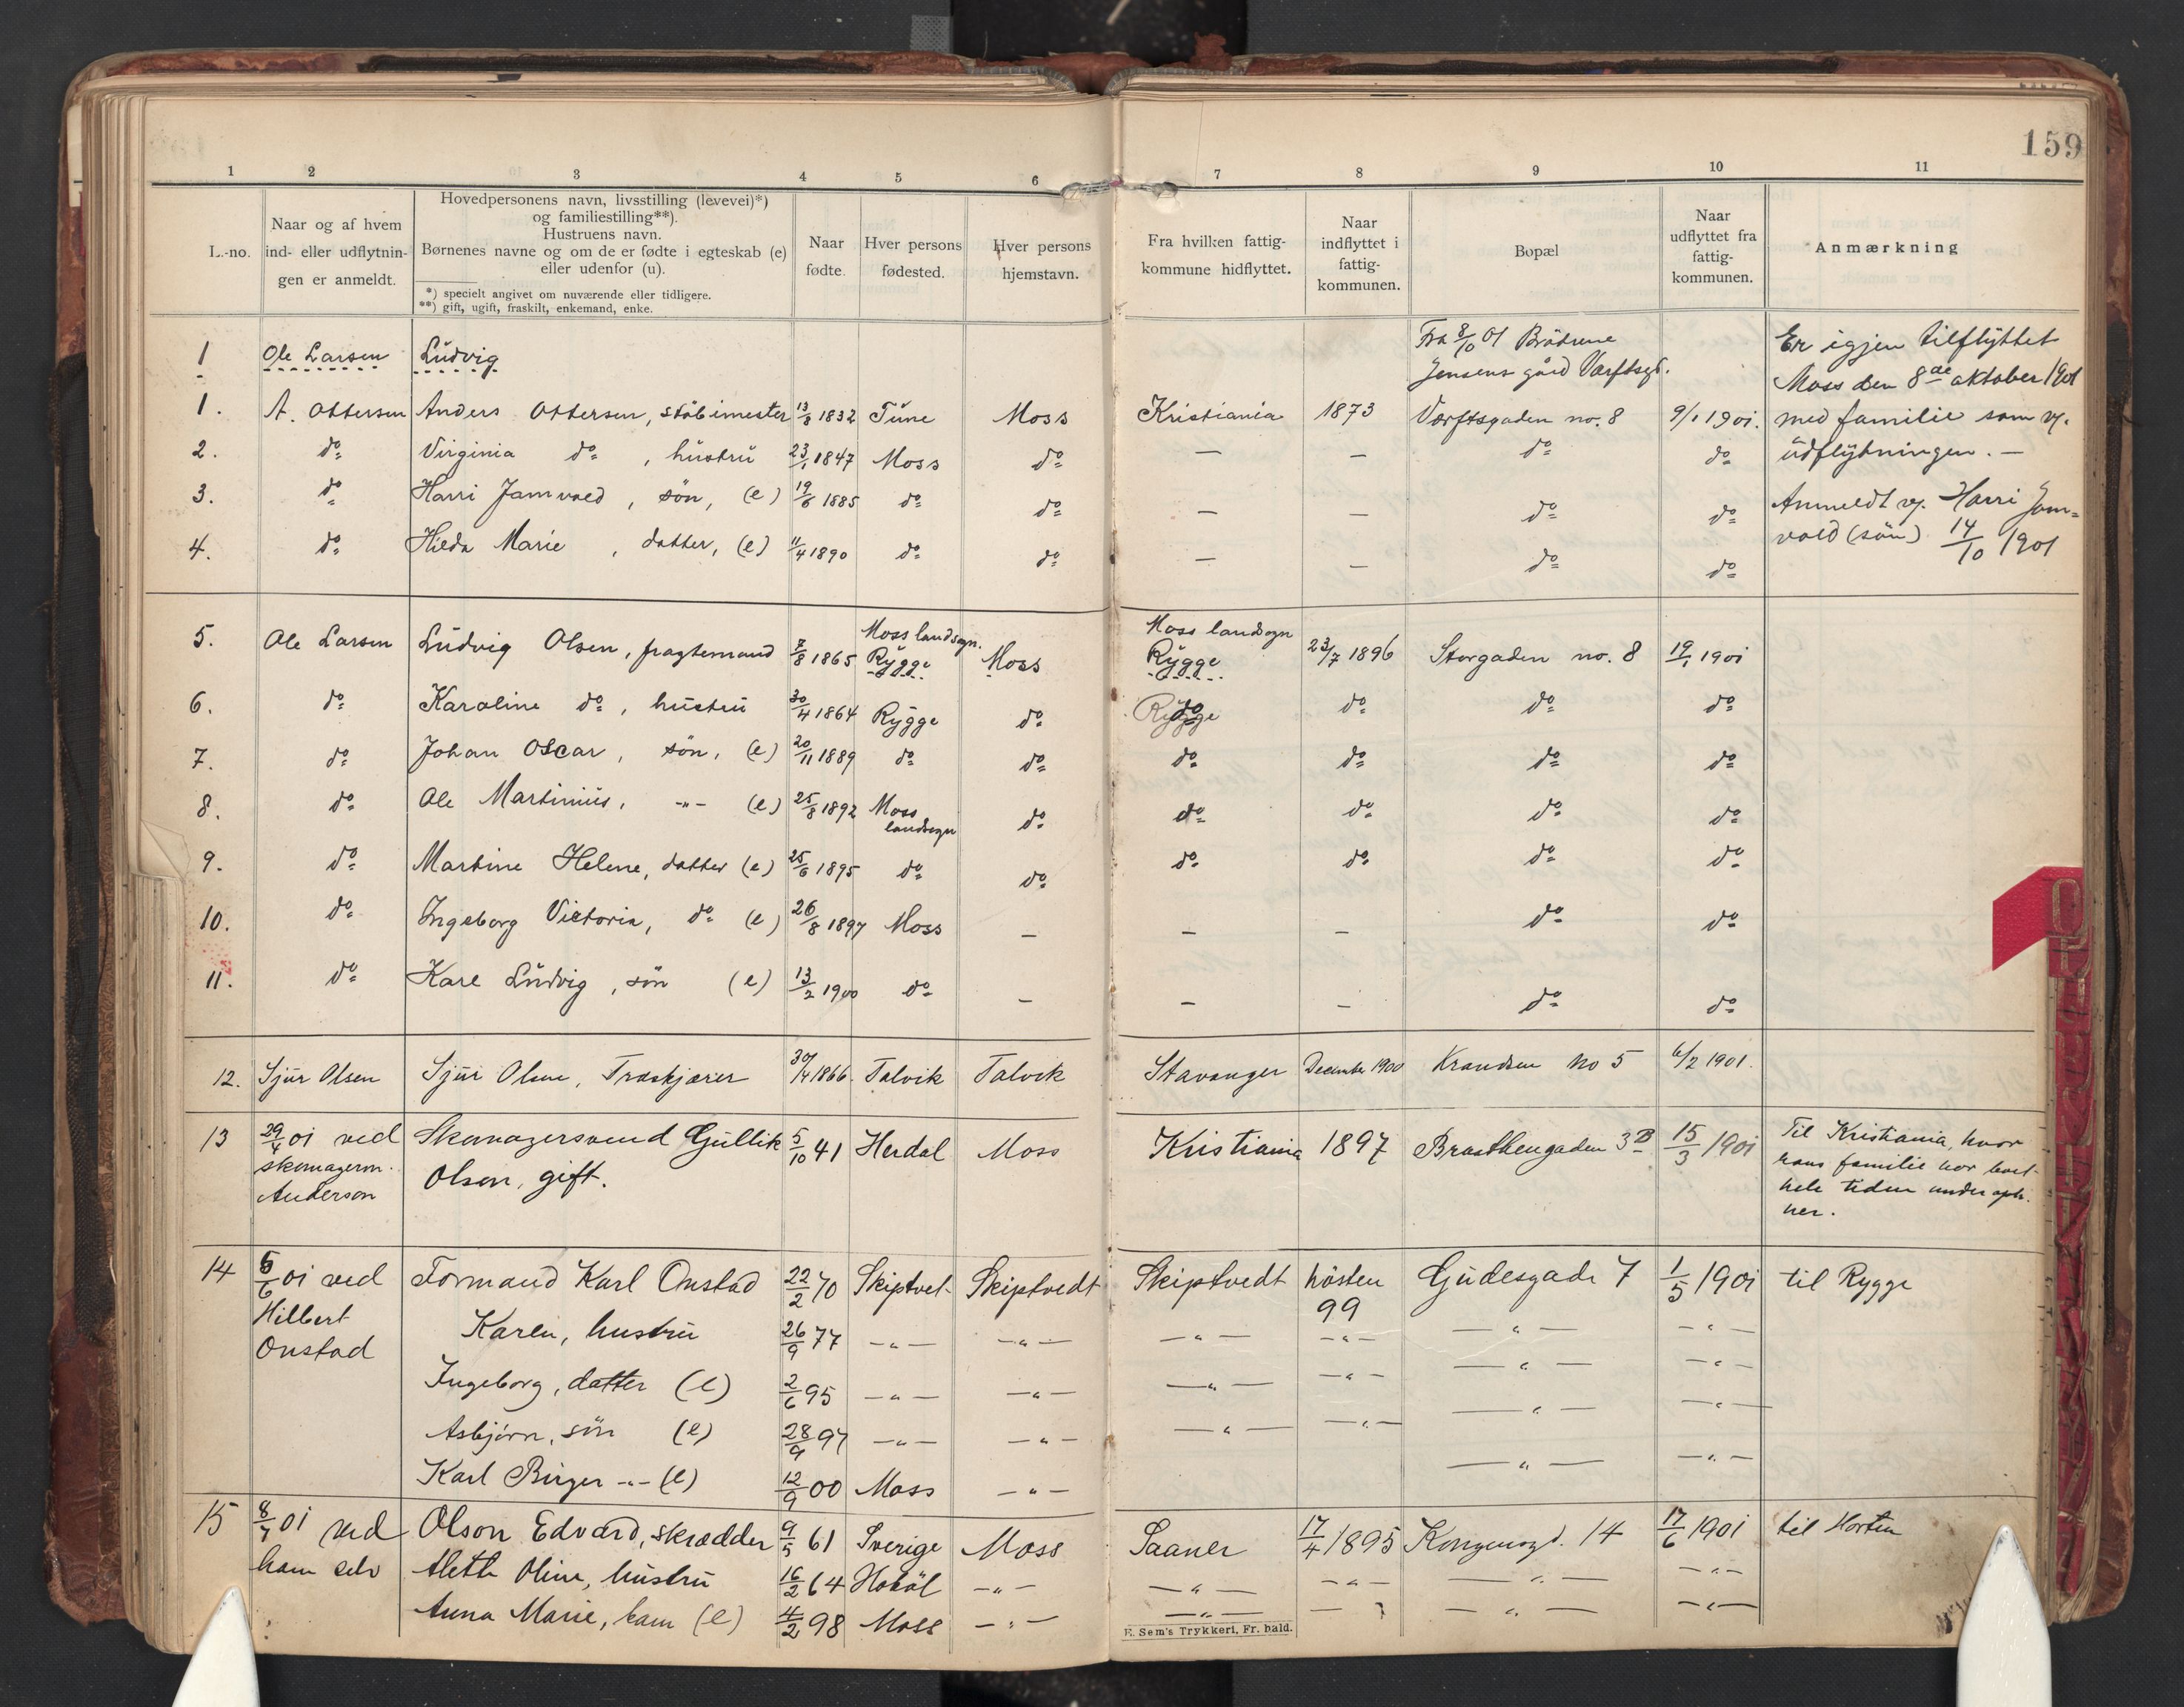 159
1 2 3 4 5 6 7 8 9 10 11
L.-no.
Naar og af hvem
ind- eller udflytnin-
gen er anmeldt.
Hovedpersonens navn, livsstilling (levevei)*)
og familiestilling**).
Hustruens navn.
Børnenes navne og om de er fødte i egteskab (e)
eller udenfor (u).
*) specielt angivet om nuværende eller tidligere.
**) gift, ugift, fraskilt, enkemand, enke.
Naar
fødte.
Hver persons
fødested.
Hver persons
hjemstavn.
Fra hvilken fattig-
kommune hidflyttet.
Naar
indflyttet i
fattig-
kommunen.
Bopæl
Naar
udflyttet fra
fattig-
kommunen.
Anmærkning
1 Ole Larsen Ludvig
Fra 8/10 01 Brödrene
Jensens gård Værftsgd.
Er igjen tilflyttet
Moss den 8de oktober 1901
med familie som v.
udflytningen. —
Anmeldt v. Harri Jam=
vold (søn) 14/10 1901
1. A. Ottersen Anders Ottersen, støbimester 13/8 1832 Tune Moss Kristiania 1873 Værftsgaden no. 8 9/1 1901.
2. do Virginia do, hustru 23/1 1847 Moss do — — do do
3. do Harri Jamvold, søn, (e) 19/6 1885 do do — — do do
4. do Hilda Marie, datter, (e) 11/4 1890 do do — — do do
5. Ole Larsen Ludvig Olsen, fragtemand 7/8 1865 Moss landsogn. Rygge. Moss Moss landsogn Rygge. 23/7 1896 Storgaden no. 8 19/1 1901
6. do Karoline do, hustru 30/4 1864 Rygge do Rygge do do do do
7. do Johan Oscar, søn, (e) 20/11 1889 do do do do do do
8. do Ole Martinius, -"- (e) 25/8 1892 Moss landsogn do do do do do
9. do Martine Helene, datter (e) 25/6 1895 do do do do do do
10. do Ingeborg Victoria, do (e) 26/8 1897 Moss — — — do do
11. do Karl Ludvig, søn (e) 13/2 1900 do — — — do do
12. Sjur Olsen Sjur Olsen, Træskjærer 30/4 1866. Talvik Talvik Stavanger December 1900 Krandsen No 5 6/2 1901.
13 29/4 01 ved Skomagersvend Gullik 5/10 41 Herdal Moss Kristiania 1897 Braathengaden 3B 15/3 1901 Til Kristiania, hvor
skomagerm. Olsen, gift. hans familie har boet
Anderson hele tiden under oph.
her.
14 6/6 01 ved Formand Karl Onstad 22/2 70 Skiptvet Skiptvedt Skiptvedt hösten 99 Gudesgade 7 1/5 1901 til Rygge
Hilbert Karen, hustru 26/9 77 —"— —"— —"— —"— —"— —"—
Onstad Ingeborg, datter (e) 2/6 95 —"— —"— —"— —"— —"— —"—
Asbjørn, sön (e) 28/9 97 —"— —"— —"— —"— —"— —"—
Karl Birger -"- (e) 12/9 00 Moss —"— —"— —"—
15 8/7 01 ved Olson Edvard, skrædder 9/5 61 Sverige Moss Saaner 17/4 1895 Kongensgd. 14 17/6 1901 til Horten
ham selv Alette Oline, hustru 16/2 64 Hobøl —"— —"— —"— —"— —"—
Anna Marie, barn (e) 4/2 98 Moss —"— —"— —"— —"— —"—
E. Sem's Trykkeri, Fr. hald.